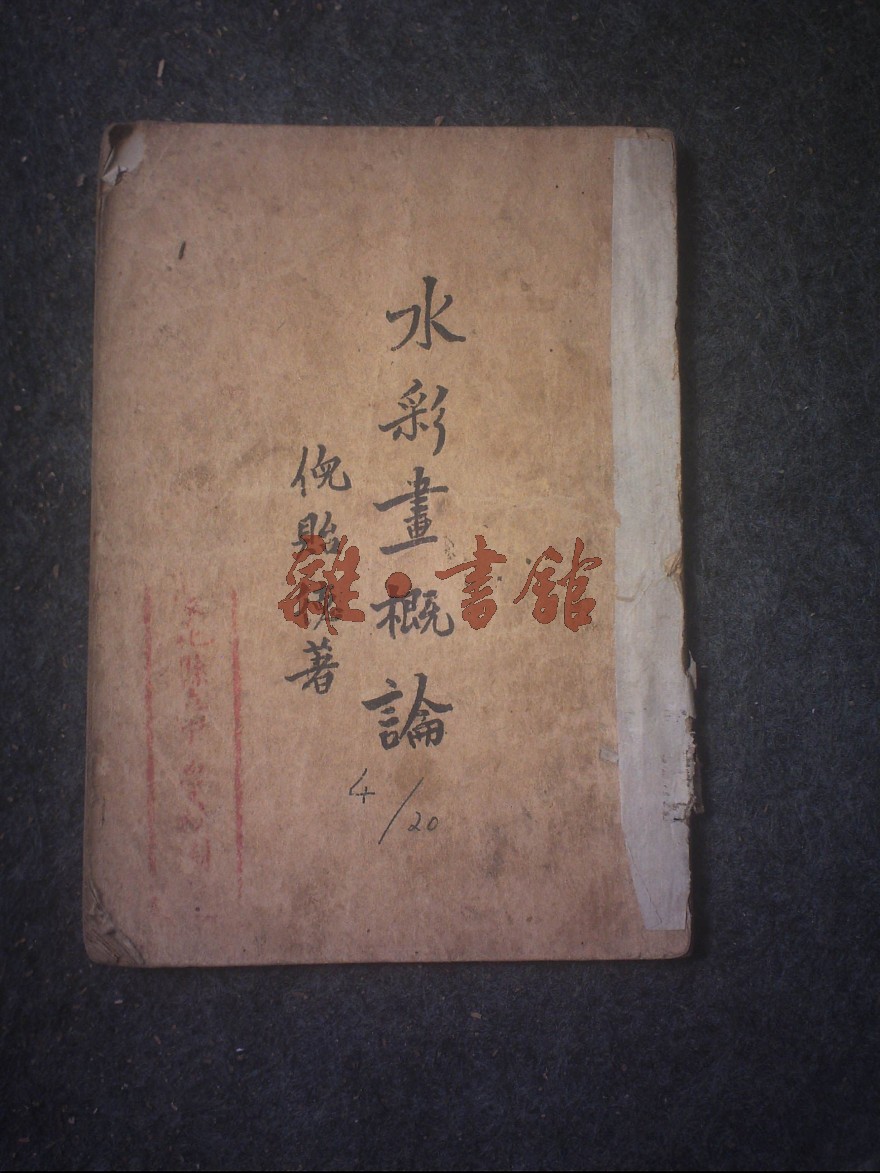 水彩畫概論
倪貽德著
4/20
雜·書館